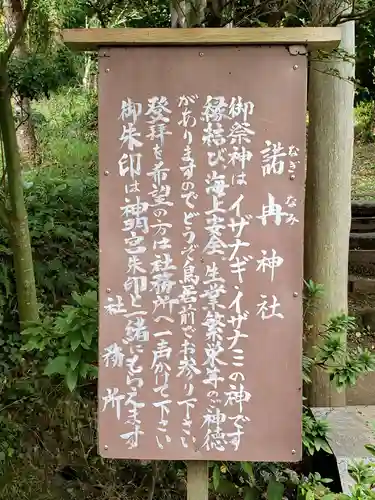 諾冉神社
なぎ なみ
御祭神はイザナギ・イザナミの神です
縁結び海上安全・生業・繁栄等のご神徳
がありますのでどうぞ鳥居前でお参り下さい
登拝を希望の方は社務所へ一声かけて下さい
御朱印は神明宮朱印と一緒にもらえます
社務所